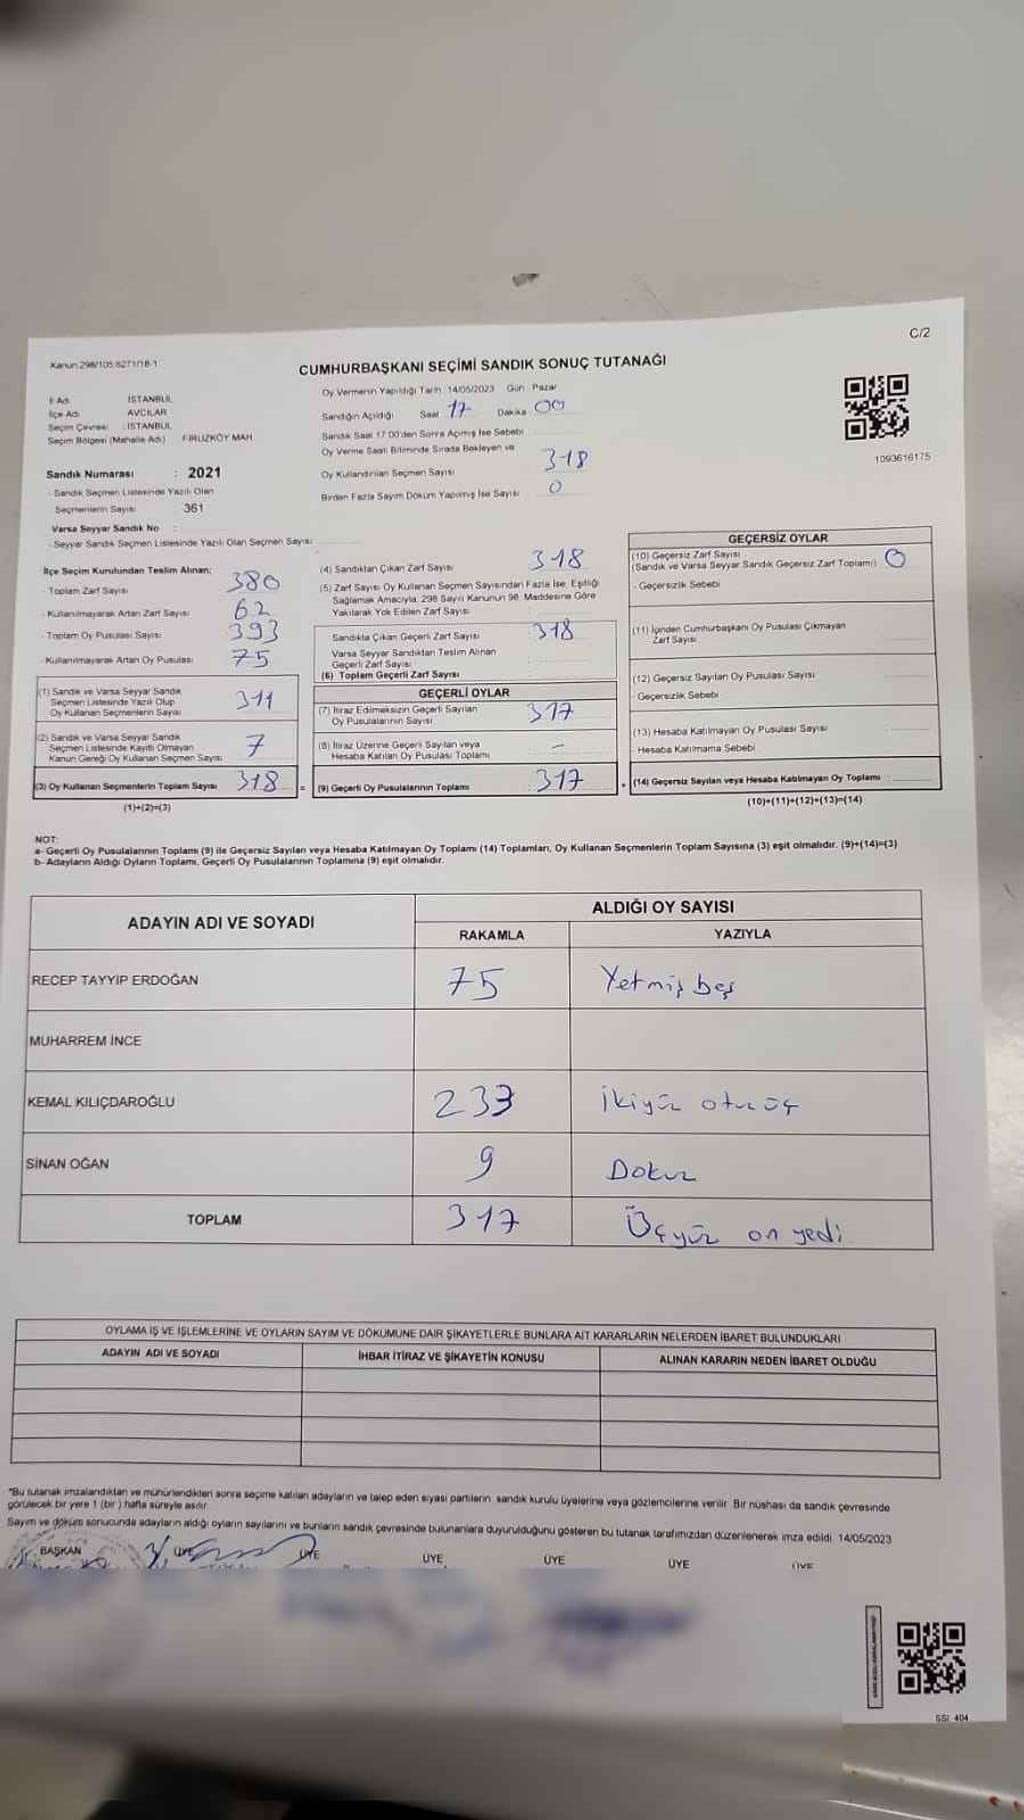 C/2
Kanun:298/105,6271/18-1
CUMHURBAŞKANI SEÇİMİ SANDIK SONUÇ TUTANAĞI
İl Adı : İSTANBUL
İlçe Adı : AVCILAR
Seçim Çevresi : İSTANBUL
Seçim Bölgesi (Mahalle Adı) : FİRUZKÖY MAH
Sandık Numarası : 2021
- Sandık Seçmen Listesinde Yazılı Olan
Seçmenlerin Sayısı 361
Varsa Seyyar Sandık No :
- Seyyar Sandık Seçmen Listesinde Yazılı Olan Seçmen Sayısı
Oy Vermenin Yapıldığı Tarih: 14/05/2023 Gün: Pazar
Sandığın Açıldığı Saat 17 Dakika 00
Sandık Saat 17:00'den Sonra Açılmış İse Sebebi
Oy Verme Saati Bitiminde Sırada Bekleyen ve
Oy Kullandırılan Seçmen Sayısı 318
Birden Fazla Sayım Döküm Yapılmış İse Sayısı 0
1093616175
İlçe Seçim Kurulundan Teslim Alınan;
- Toplam Zarf Sayısı 380
- Kullanılmayarak Artan Zarf Sayısı 62
- Toplam Oy Pusulası Sayısı 393
- Kullanılmayarak Artan Oy Pusulası 75
(1) Sandık ve Varsa Seyyar Sandık
Seçmen Listesinde Yazılı Olup
Oy Kullanan Seçmenlerin Sayısı 311
(2) Sandık ve Varsa Seyyar Sandık
Seçmen Listesinde Kayıtlı Olmayan
Kanun Gereği Oy Kullanan Seçmen Sayısı 7
(3) Oy Kullanan Seçmenlerin Toplam Sayısı 318 =
(1)+(2)=(3)
(4) Sandıktan Çıkan Zarf Sayısı 318
(5) Zarf Sayısı Oy Kullanan Seçmen Sayısından Fazla İse, Eşitliği
Sağlamak Amacıyla, 298 Sayılı Kanunun 98. Maddesine Göre
Yakılarak Yok Edilen Zarf Sayısı
Sandıkta Çıkan Geçerli Zarf Sayısı 318
Varsa Seyyar Sandıktan Teslim Alınan
Geçerli Zarf Sayısı
(6) Toplam Geçerli Zarf Sayısı
GEÇERLİ OYLAR
(7) İtiraz Edilmeksizin Geçerli Sayılan
Oy Pusulalarının Sayısı 317
(8) İtiraz Üzerine Geçerli Sayılan veya
Hesaba Katılan Oy Pusulası Toplamı -
(9) Geçerli Oy Pusulalarının Toplamı : 317 +
GEÇERSİZ OYLAR
(10) Geçersiz Zarf Sayısı
(Sandık ve Varsa Seyyar Sandık Geçersiz Zarf Toplamı) 0
- Geçersizlik Sebebi
(11) İçinden Cumhurbaşkanı Oy Pusulası Çıkmayan
Zarf Sayısı
(12) Geçersiz Sayılan Oy Pusulası Sayısı
- Geçersizlik Sebebi
(13) Hesaba Katılmayan Oy Pusulası Sayısı
- Hesaba Katılmama Sebebi
(14) Geçersiz Sayılan veya Hesaba Katılmayan Oy Toplamı :
(10)+(11)+(12)+(13)=(14)
NOT:
a- Geçerli Oy Pusulalarının Toplamı (9) ile Geçersiz Sayılan veya Hesaba Katılmayan Oy Toplamı (14) Toplamları, Oy Kullanan Seçmenlerin Toplam Sayısına (3) eşit olmalıdır. (9)+(14)=(3)
b- Adayların Aldığı Oyların Toplamı, Geçerli Oy Pusulalarının Toplamına (9) eşit olmalıdır.
ADAYIN ADI VE SOYADI ALDIĞI OY SAYISI
RAKAMLA YAZIYLA
RECEP TAYYİP ERDOĞAN 75 Yetmiş beş
MUHARREM İNCE
KEMAL KILIÇDAROĞLU 233 İkiyüz otuzüç
SİNAN OĞAN 9 Dokuz
TOPLAM 317 Üçyüz on yedi
OYLAMA İŞ VE İŞLEMLERİNE VE OYLARIN SAYIM VE DÖKÜMÜNE DAİR ŞİKAYETLERLE BUNLARA AİT KARARLARIN NELERDEN İBARET BULUNDUKLARI
ADAYIN ADI VE SOYADI İHBAR İTİRAZ VE ŞİKAYETİN KONUSU ALINAN KARARIN NEDEN İBARET OLDUĞU
*Bu tutanak imzalandıktan ve mühürlendikten sonra seçime katılan adayların ve talep eden siyasi partilerin sandık kurulu üyelerine veya gözlemcilerine verilir. Bir nüshası da sandık çevresinde
görülecek bir yere 1 (bir) hafta süreyle asılır.
Sayım ve döküm sonucunda adayların aldığı oyların sayılarını ve bunların sandık çevresinde bulunanlara duyurulduğunu gösteren bu tutanak tarafımızdan düzenlenerek imza edildi. 14/05/2023
BAŞKAN ÜYE ÜYE ÜYE ÜYE ÜYE ÜYE
SSI: 404